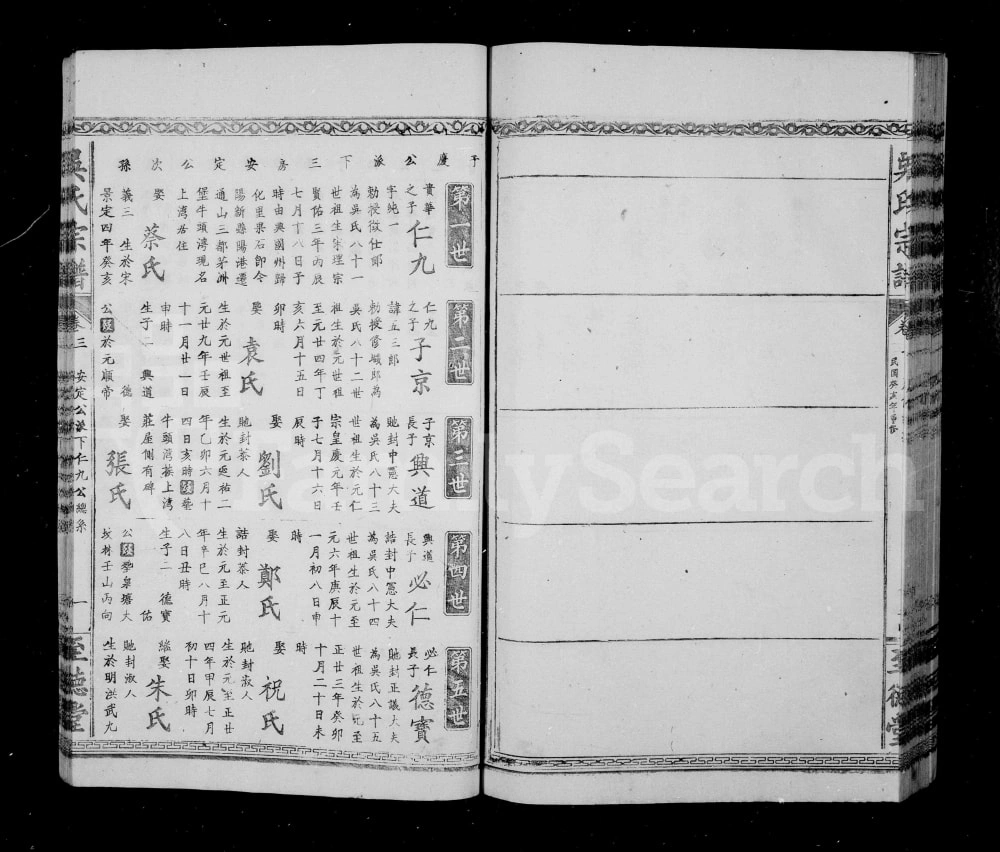 子慶公派下三房安定公次孫
第一世
貴華
之子
仁九
字純一
勅授徵仕郎
為吳氏八十一
世祖生宋理宗
寶佑三年丙辰
七月十八日子
時由興國州歸
化里果石卽今
陽新縣陽港遷
通山三都茅洲
堡牛頭濤現名
上湾居住
娶
蔡氏
義三
生於宋
景定四年癸亥
第二世
仁九
之子
子京
諱五三郎
勅授脩職郎為
吳氏八十二世
祖生於元世祖
至元廿四年丁
亥六月十五日
卯時
娶
袁氏
生於元世祖至
元廿九年壬辰
十一月廿一日
申時
生子二
興道
德
公歿於元順帝
第三世
子京
長子
興道
貤封中憲大夫
為吳氏八十三
世祖生於元仁
宗皇慶元年壬
子七月十六日
辰時
娶
劉氏
貤封恭人
生於元延祐二
年乙卯六月十
四日亥時歿葬
牛頭湾葵上湾
莊屋側有碑
娶
張氏
第四世
興道
長子
必仁
誥封中憲大夫
為吳氏八十四
世祖生於元至
元六年庚辰十
一月初八日申
時
娶
鄭氏
誥封恭人
生於元至正元
年辛巳八月十
八日丑時
生子二
德寶
佑
公歿學皋塘大
坟林壬山丙向
第五世
必仁
長子
德寶
貤封正議大夫
為吳氏八十五
世祖生於元至
正廿三年癸卯
十月二十日未
時
娶
祝氏
貤封淑人
生於元至正廿
四年甲辰七月
初十日卯時
繼娶
朱氏
貤封淑人
生於明洪武九
吳氏宗譜
卷三
安定公派下仁九公總系
一
至德堂
吳氏宗譜
民國癸亥年
至德堂
FamilySearch